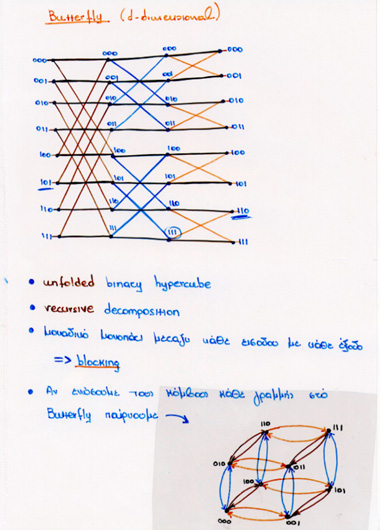 Butterfly (d-dimensional)
000 000 000 000
001 001 001 001
010 010 010 010
011 011 011 011
100 100 100 100
101 101 101 101
110 110 110 110
111 111 111 111
• unfolded binary hypercube
• recursive decomposition
• μοναδικό μονοπάτι μεταξύ κάθε εισόδου με κάθε έξοδο
=> blocking
• Αν ενώσουμε τους κόμβους κάθε γραμμής στο
Butterfly παίρνουμε →
110 111
010 011
100 101
000 001